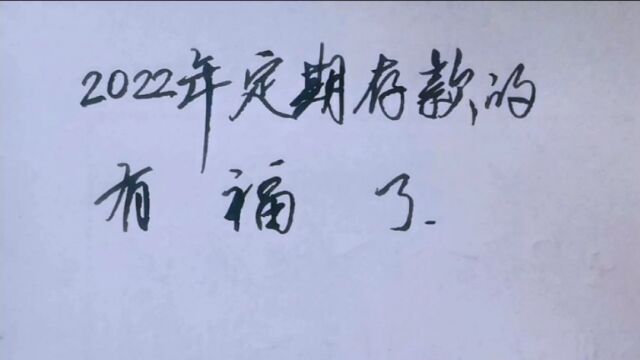 2022年定期存款的
有福了.